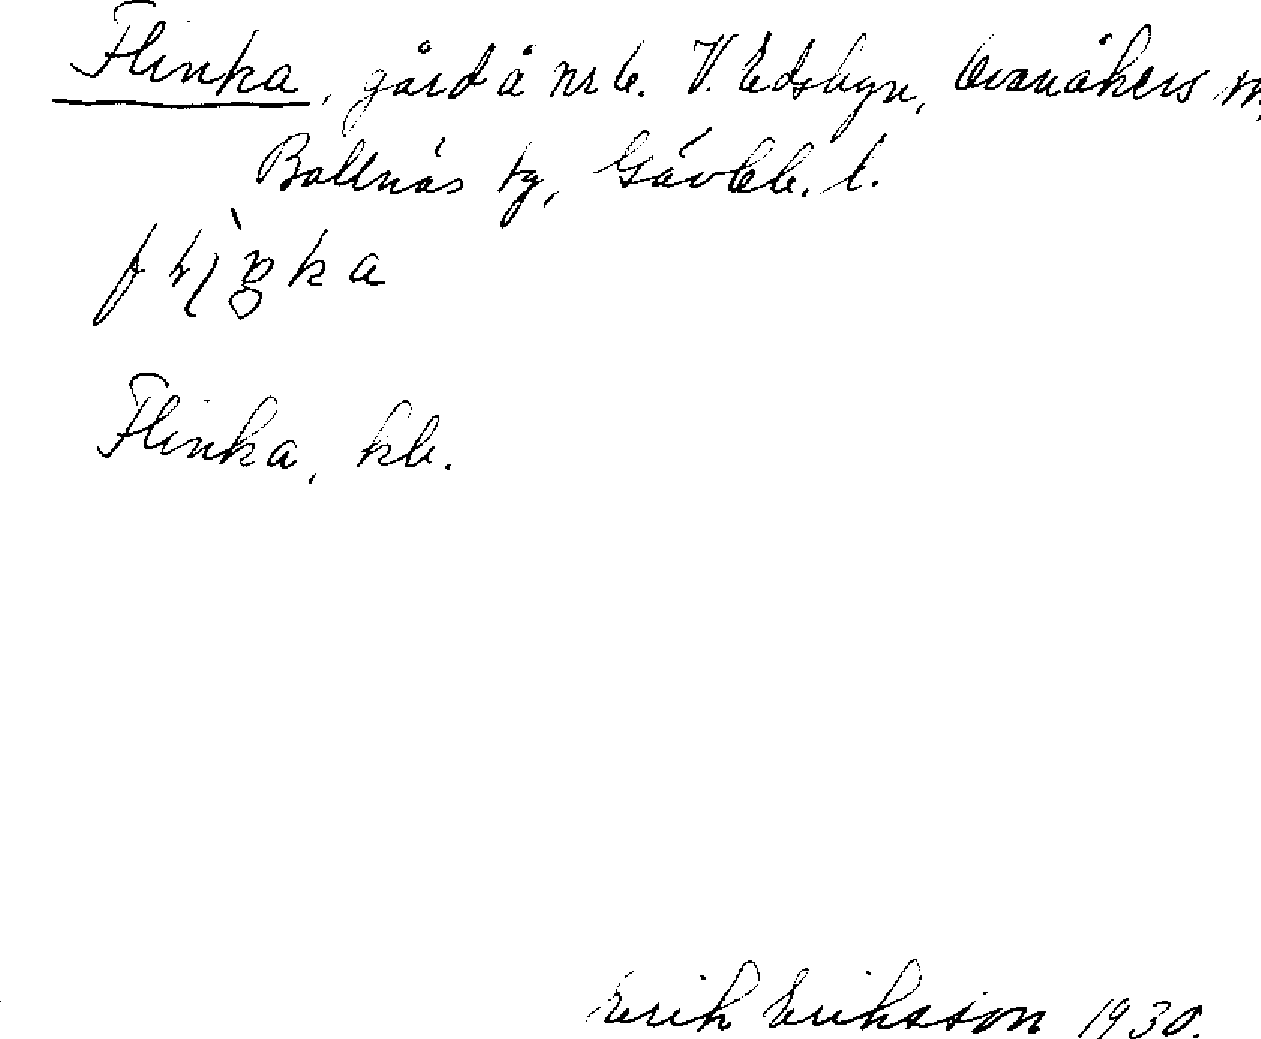 Flinka, gård å nr 6. V. Edsbyn, Ovanåkers sn,
Bollnäs tg, Gävleb. l.
Flinka, kb.
Erik Eriksson 1930.